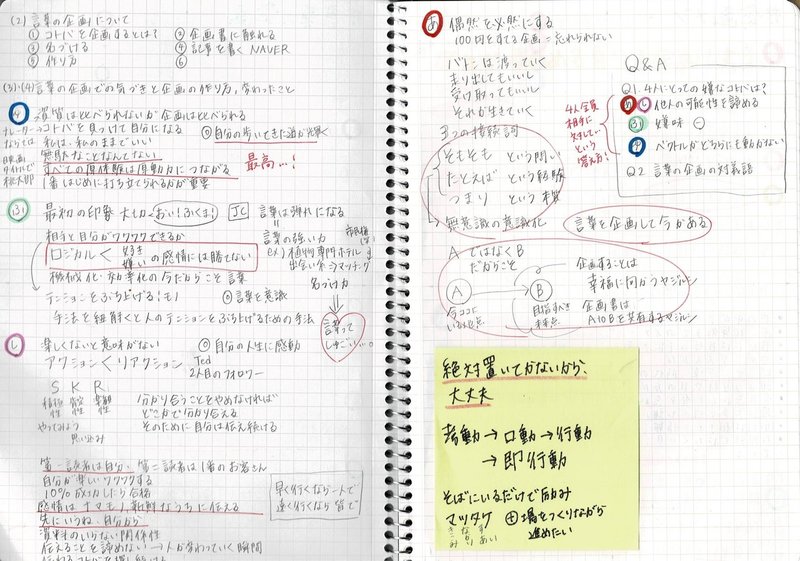 (2) 言葉の企画について
① コトバを企画するとは?
② 企画書に触れる
③ 名づける
④ 記事を書く NAVER
⑤ 作り方
⑥
(3)・(4) 言葉の企画での気づきと企画の作り方、変わったこと
資質はくらべられないが企画はくらべられる
コトバを見つけて自分になる
◎自分の歩いてきた道が輝く
私は、私のままでいい
無駄なことなんてない
最高…!
すべての原体験は原動力につながる
1番はじめに打ちあてられるかが重要
トレーラー
ならでは
映画
タイトルで
桃太郎
最初の印象 大切 おい!ふくま!
JC 言葉は弾れになる
相手と自分がワクワクできるか
言葉の強い力
ロジカル < 好き 嫌い の感情には勝てない
ex) 植物専門ホテル
出会い系→マッチング
機械化・効率化の今だからこそ言葉
名づけ力
テンションをぶち上げるモノ
◎言葉を意識
手法を紐解くと人のテンションをぶち上げるための手法
言葉って
しゅごい…。
し
楽しくないと意味がない
◎自分の人生に感動
アクション < リアクション
Ted
2人目のフォロワー
S K R
積極性
やってみよう
思い込み
分かり合うことをやめなければ
どこかで分かり合える
そのために自分は伝え続ける
第一読者は自分、第二読者は1番のお客さん
自分が楽しいワクワクする
10%成功したら合格
感情はナマモノ 新鮮なうちに伝える
先にいうね、自分から
資料のいらない関係性
伝えることを諦めない → 人が変わっていく瞬間
早く行くなら一人で
遠く行くなら皆で
あ
偶然を必然にする
100円をすてる企画=忘れられない
バトンは渡っていく
走り出してもいいし
受け取ってもいいし
それが生きていく
3つの接続詞
そもそも という問い
たとえば という経験
つまり という本質
無意識の意識化
言葉を企画して今がある
Q&A
Q1. 4人にとっての嫌なコトバは?
他人の可能性を諦める
嫌味
ベクトルがどちらにも動かない
Q2. 言葉の企画の対義語
4人全員
相手に
対して
という
答え方!
A ではなく B
だからこそ
企画することは
幸福に向かうヤジルシ
A → B
今ココに
いる地点
目指すべき
未来
企画書は
A to Bを共有するヤジルシ
絶対置いてかないから、
大丈夫
考動→口動→行動
→即行動
そばにいるだけで励み
マツタケ ⊕場をつくりながら
進めたい